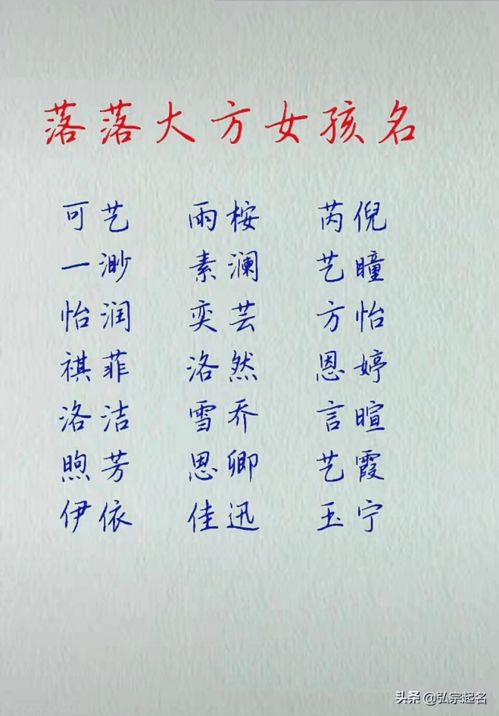 落落大方女孩名
可艺 雨桉 芮倪
一渺 素澜 艺瞳
怡润 奕芸 方怡
祺菲 洛然 恩婷
洛洁 雪乔 言暄
煦芳 思卿 艺霞
伊依 佳迅 玉宁
头条 @弘宗起名